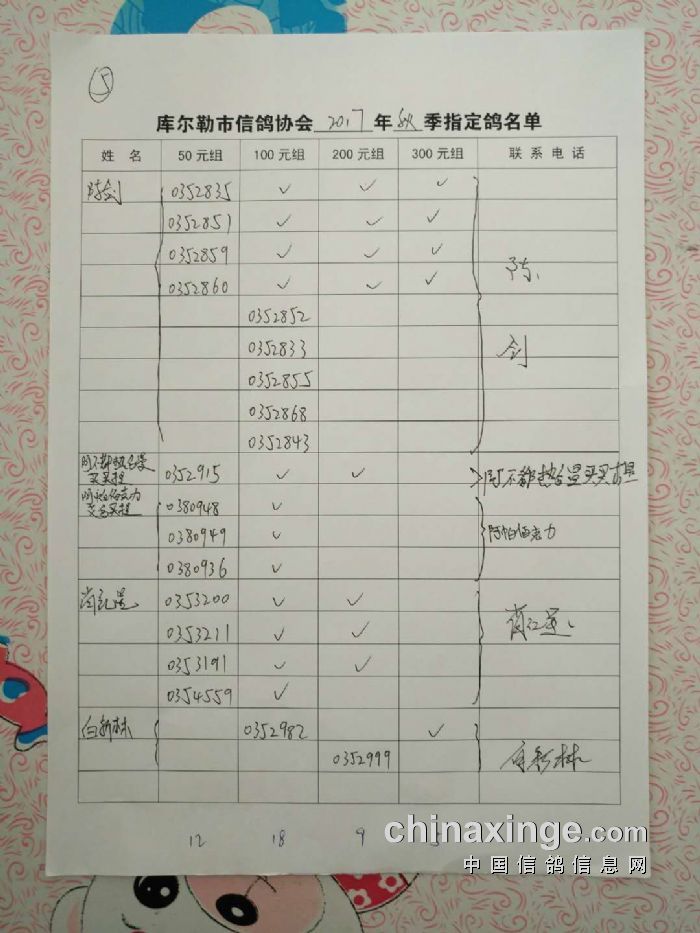 ⑤
库尔勒市信鸽协会 2017 年 秋 季指定鸽名单
姓 名 50元组 100元组 200元组 300元组 联系电话
陈剑 0352835 ✓ ✓ ✓
0352851 ✓ ✓ ✓
0352859 ✓ ✓ ✓
0352860 ✓ ✓ ✓
陈
0352852
0352833
剑
0352855
0352868
0352843
0352915 ✓ ✓
0380948 ✓
0380949 ✓ 阿帕尔克力
0380936 ✓
0353200 ✓ ✓
0353211 ✓ ✓
0353191 ✓ ✓
0354559 ✓
白新林 0352982 ✓
0352999 白新林
12 18 9
chinaxinge.com
中国信鸽信息网